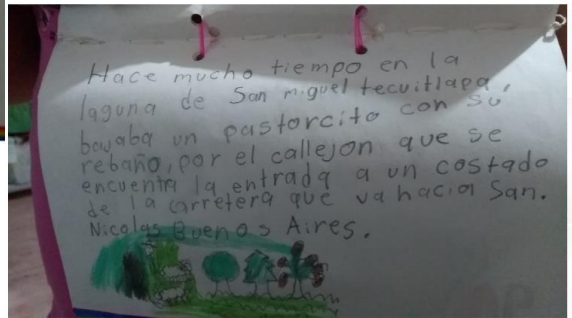 Hace mucho tiempo en la
laguna de San miguel tecuitlapa,
bajaba un pastorcito con su
rebaño, por el callejon que se
encuentra la entrada a un costado
de la carretera que va hacia San.
Nicolas Buenos Aires.